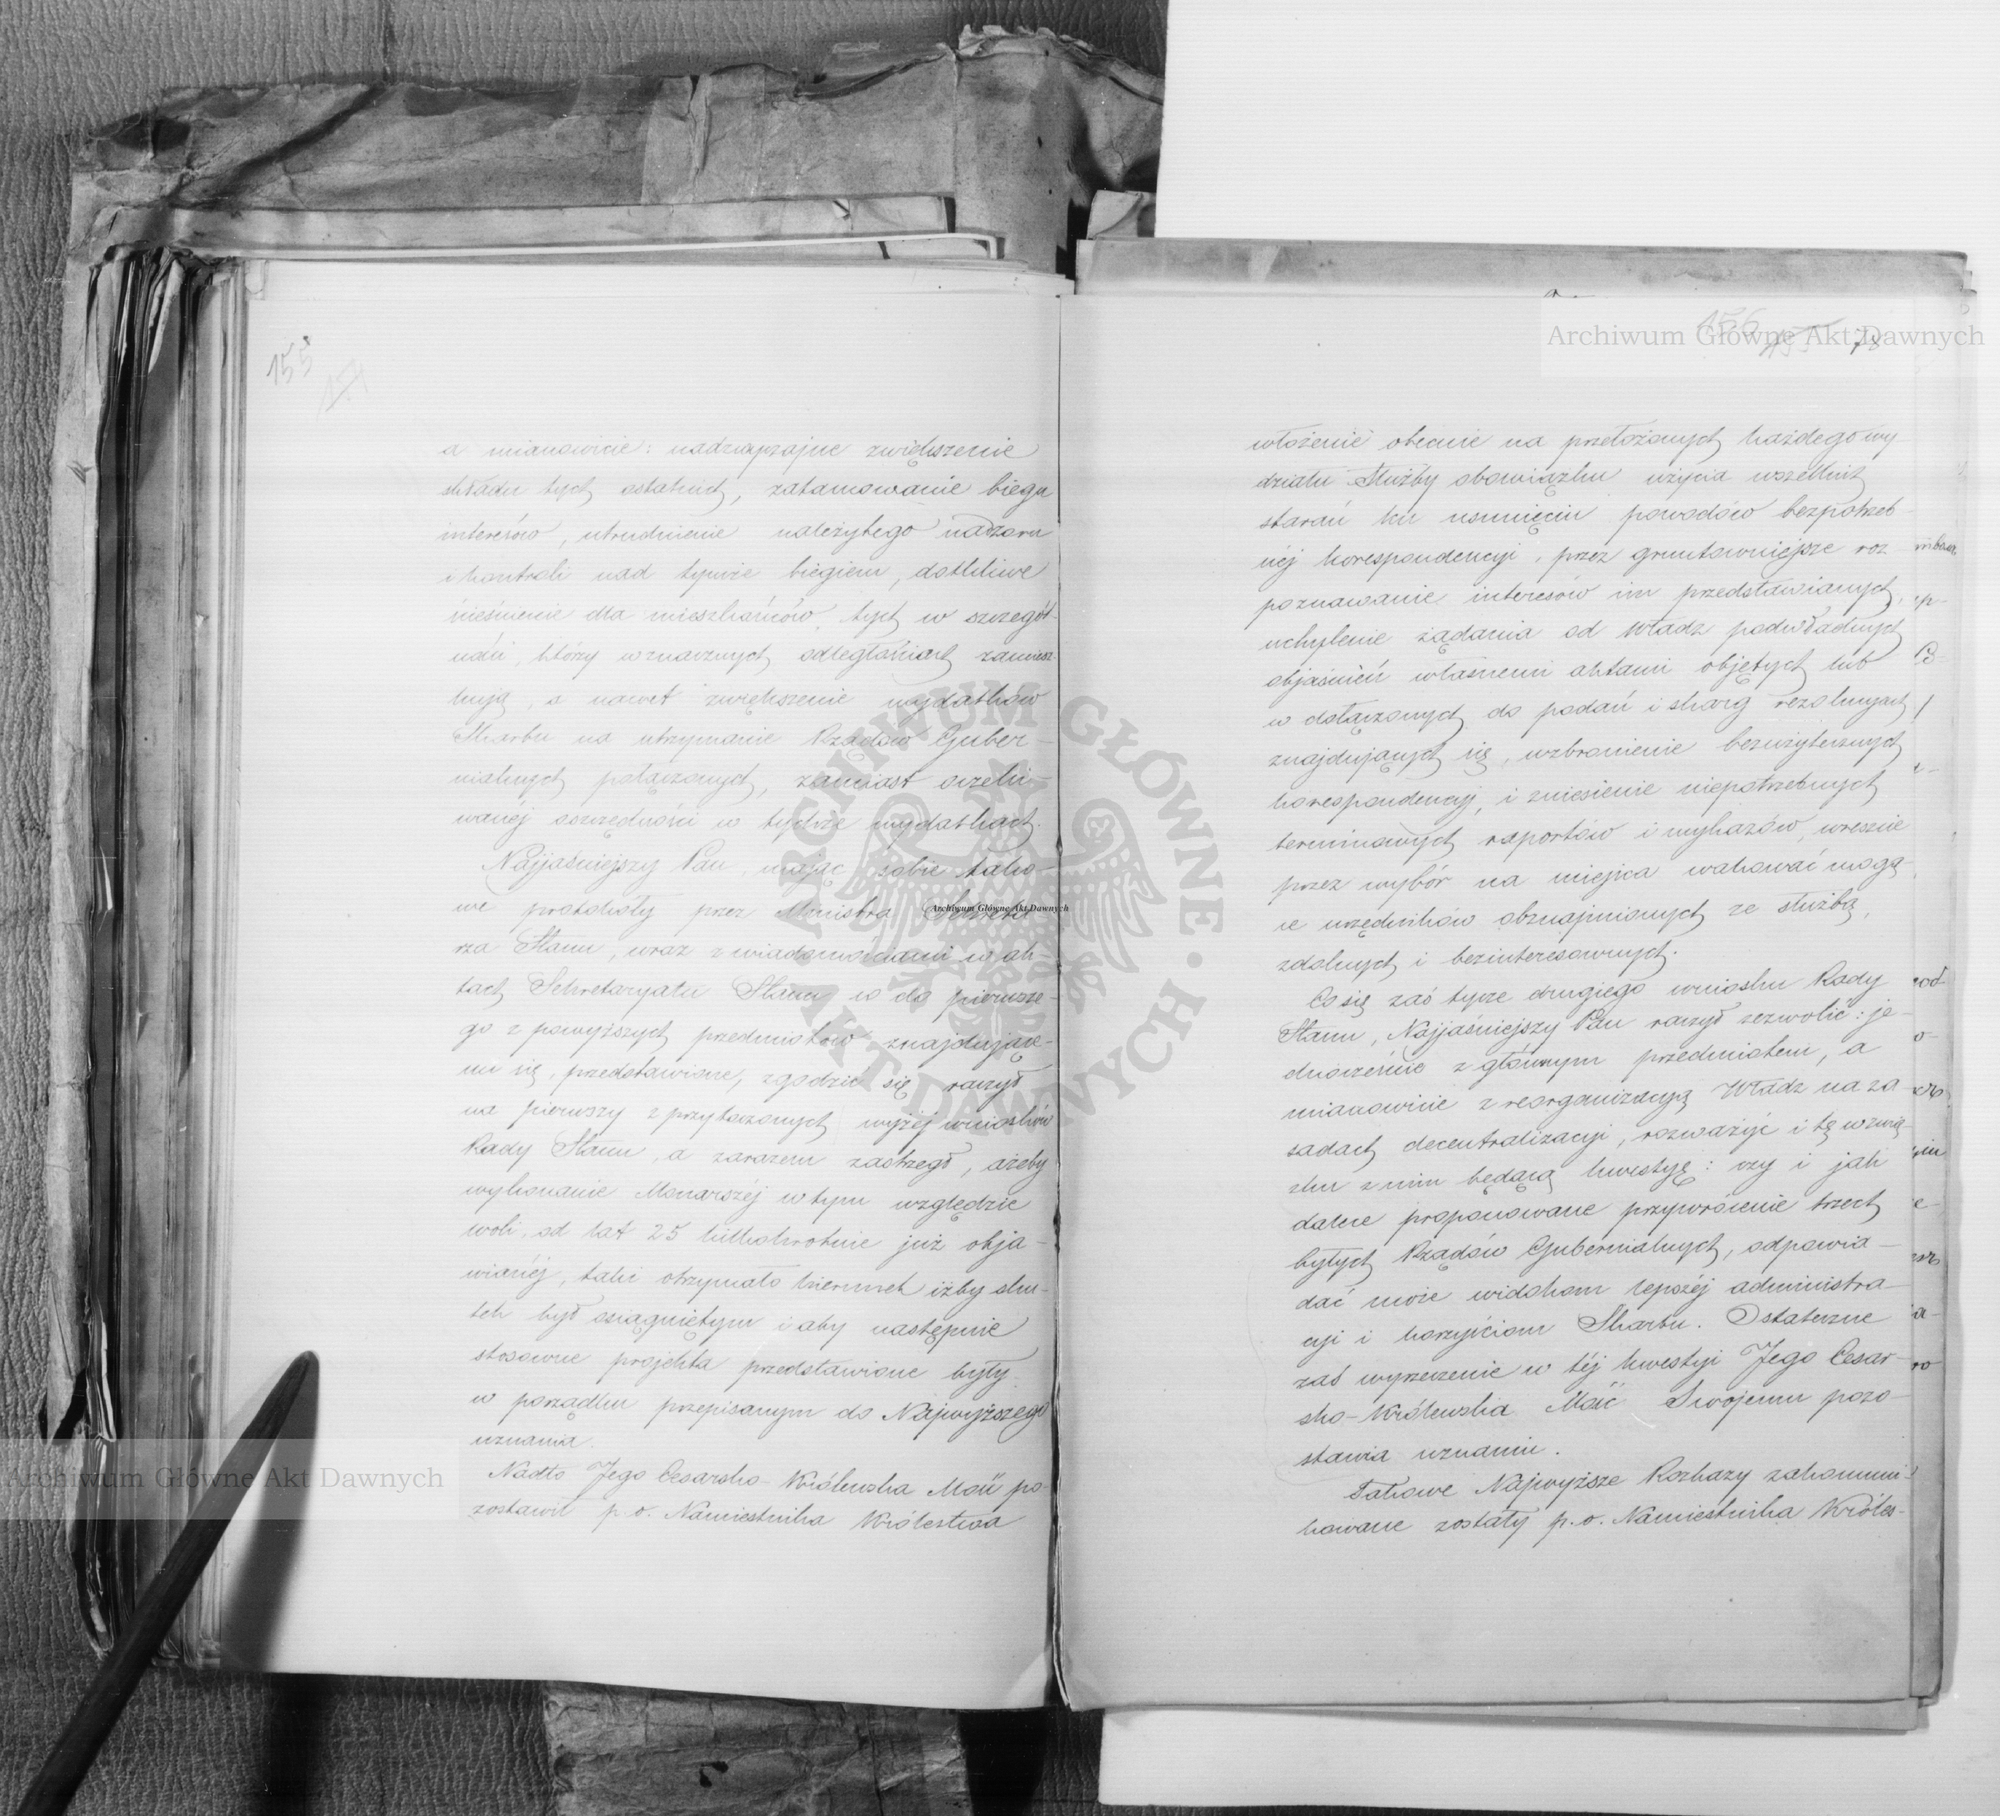 155
154
a mianowicie: nadzwyczajne zwiększenie
składu tych ostatnich, zatamowanie biegu
interesów, utrudnienie należytego nadzoru
i kontroli nad tymże biegiem, dotkliwe
uciśnienie dla mieszkańców, tych w szczegól-
ności, którzy w znacznych odległościach zamiesz-
kują, a nawet zwiększenie wydatków
Skarbu na utrzymanie Rządów Guber-
nialnych połączonych, zamiast oczeki-
wanéj oszczędności w tychże wydatkach.
Najjaśniejszy Pan, mając sobie tako-
we protokoły przez Ministra Sekreta-
rza Stanu, wraz z wiadomościami w ak-
tach Sekretaryatu Stanu co do pierwsze-
go z powyższych przedmiotów znajdujące-
mi się, przedstawione, zgodzić się raczył
na pierwszy z przytoczonych wyżéj wniosków
Rady Stanu, a zarazem zastrzegł, ażeby
wykonanie Monarszéj w tym względzie
woli, od lat 25 kilkakrotnie już obja-
wianéj, taki otrzymało kierunek iżby sku-
tek był osiągniętym i aby następnie
stosowne projekta przedstawione były
w porządku przepisanym do Najwyższego
uznania.
Nadto Jego Cesarsko-Królewska Mość po-
zostawił p.o. Namiestnika Królestwa
156
78
włożenie obecnie na przełożonych każdego wy-
działu Służby obowiązku użycia wszelkich
starań ku usunięciu powodów bezpotrzeb-
néj korespondencyi, przez gruntowniejsze roz-
poznawanie interesów im przedstawianych,
uchylenie żądania od Władz podwładnych
objaśnień własnemi aktami objętych lub
w dołączonych do podań i skarg rezolucyach
znajdujących się, wzbronienie bezużytecznych
korespondencyj, i zniesienie niepotrzebnych
terminowych raportów i wykazów, wreszcie
przez wybór na miejsca wakować mogą-
ce urzędników obznajmionych ze służbą,
zdolnych i bezinteresownych.
Co się zaś tycze drugiego wniosku Rady
Stanu, Najjaśniejszy Pan raczył zezwolić: je-
dnocześnie z głównym przedmiotem, a
mianowicie z reorganizacyą Władz na za-
sadach decentralizacyi, rozważyć i tę w zwią-
zku z nim będącą kwestyę: czy i jak
dalece proponowane przywrócenie trzech
byłych Rządów Gubernialnych, odpowia-
dać może widokom lepszéj administra-
cyi i korzyściom Skarbu. Ostateczne
zaś wyrzeczenie w téj kwestyi Jego Cesar-
sko-Królewska Mość Swojemu pozo-
stawia uznaniu.
Takowe Najwyższe Rozkazy zakomuni-
kowane zostały p.o. Namiestnika Króles-
Archiwum Główne Akt Dawnych
Archiwum Główne Akt Dawnych
Archiwum Główne Akt Dawnych
ARCHIWUM GŁÓWNE AKT DAWNYCH